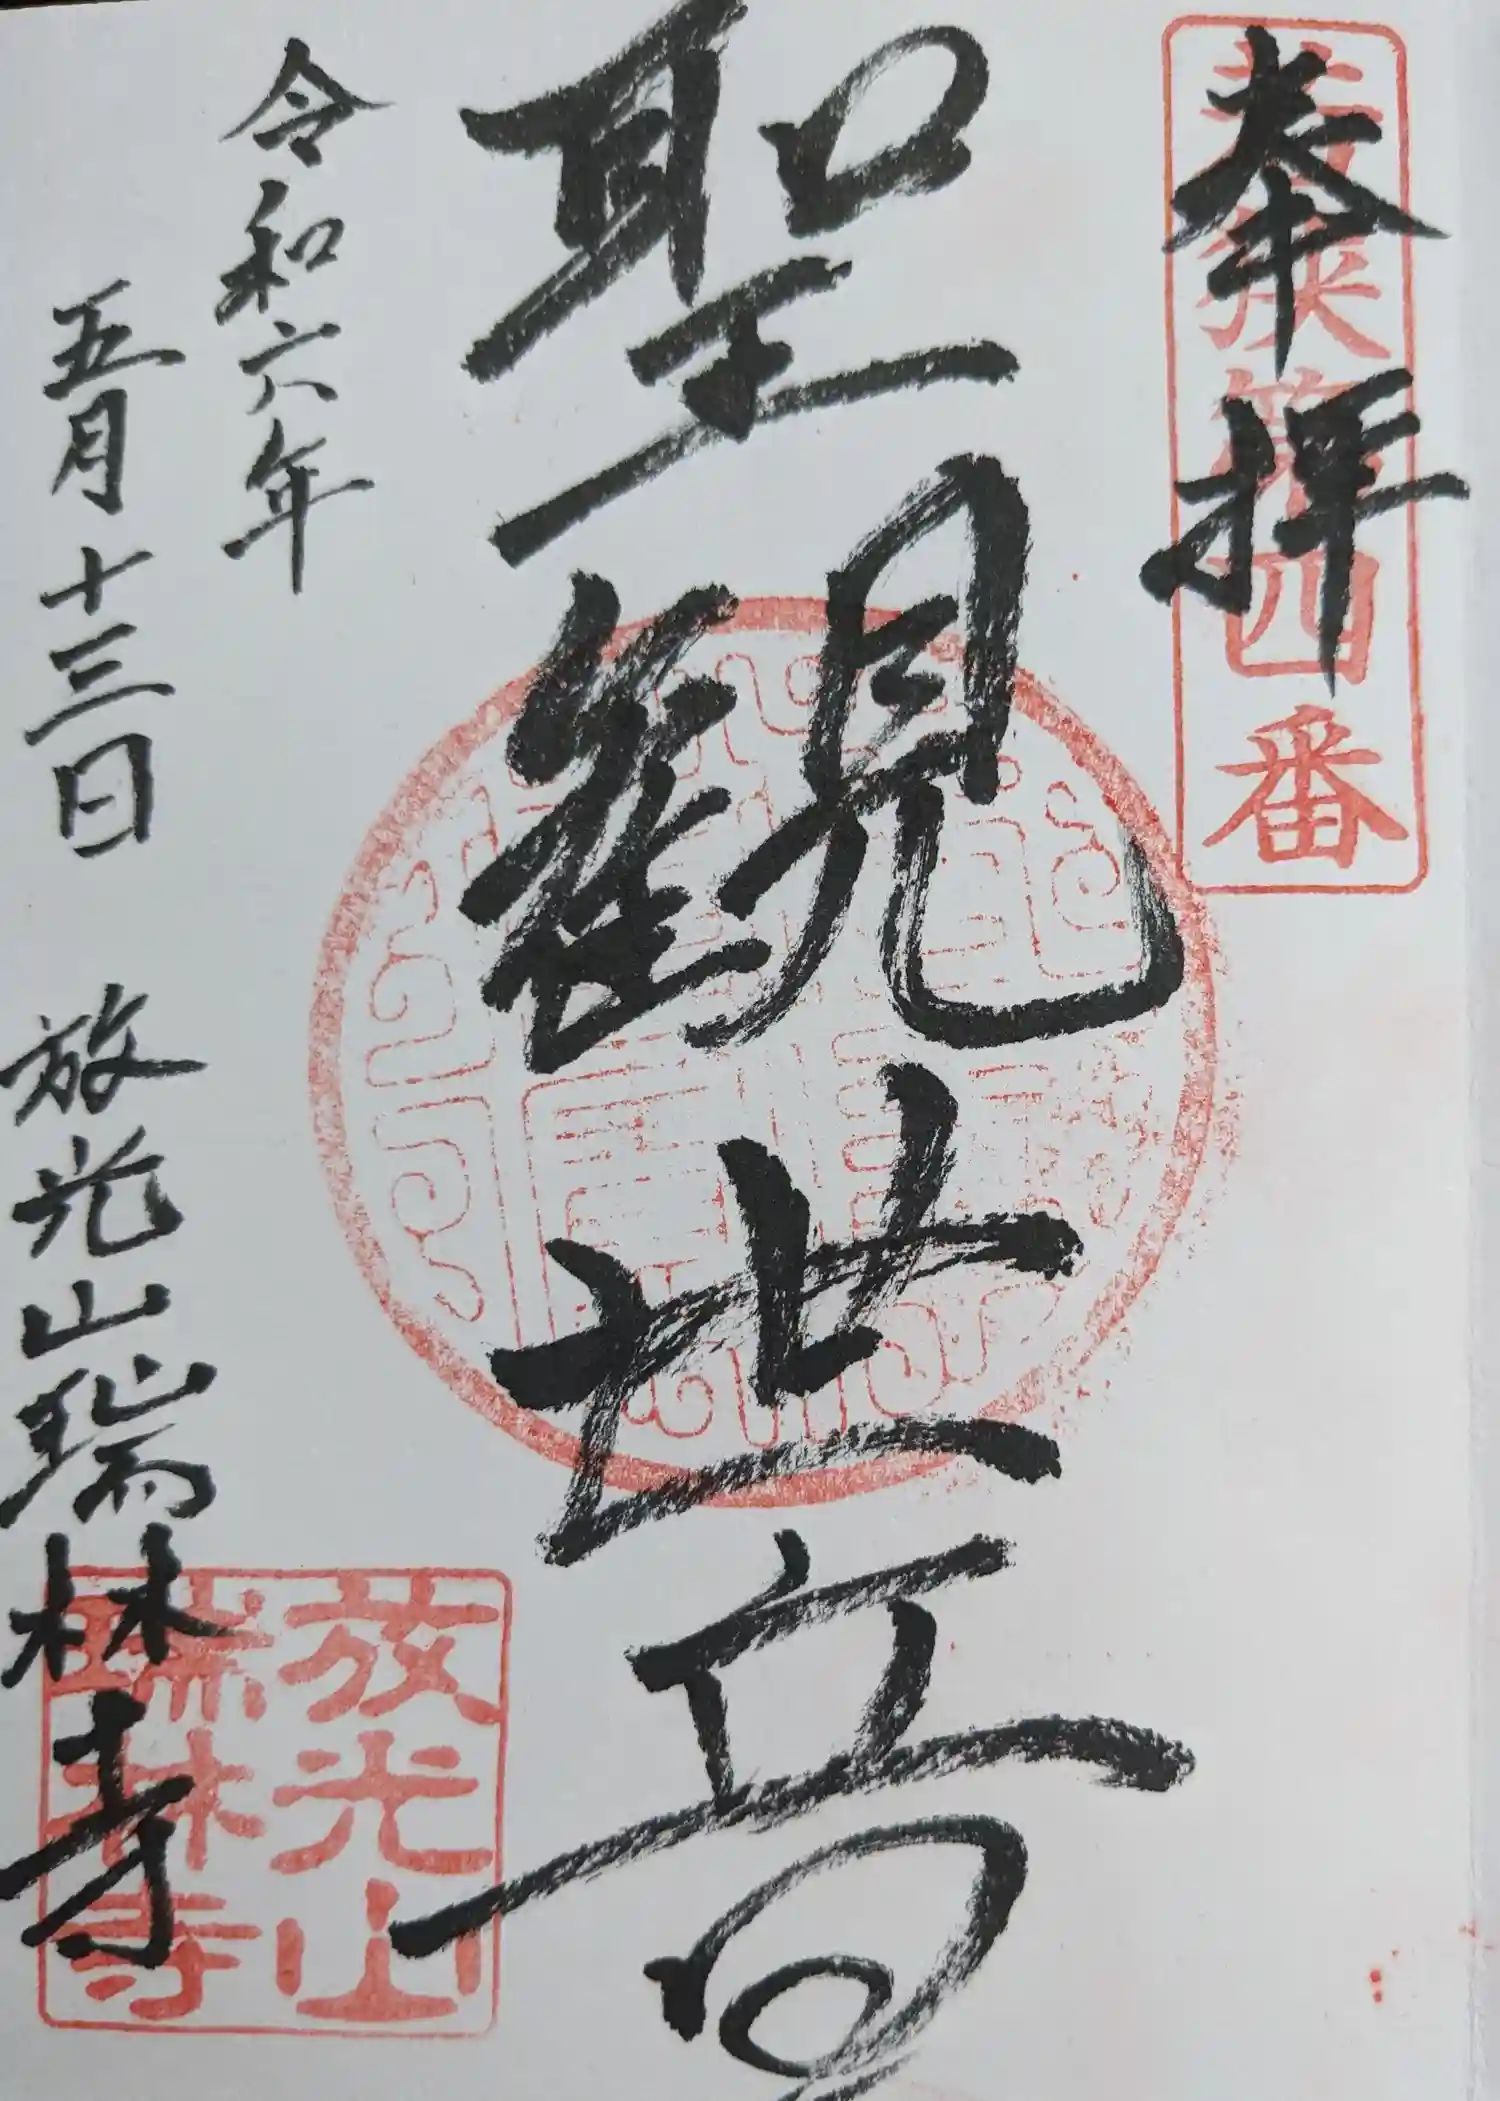 奉拝
若狭第四番
聖観世音
令和六年
五月十三日 放光山瑞林寺
放光山
瑞林寺